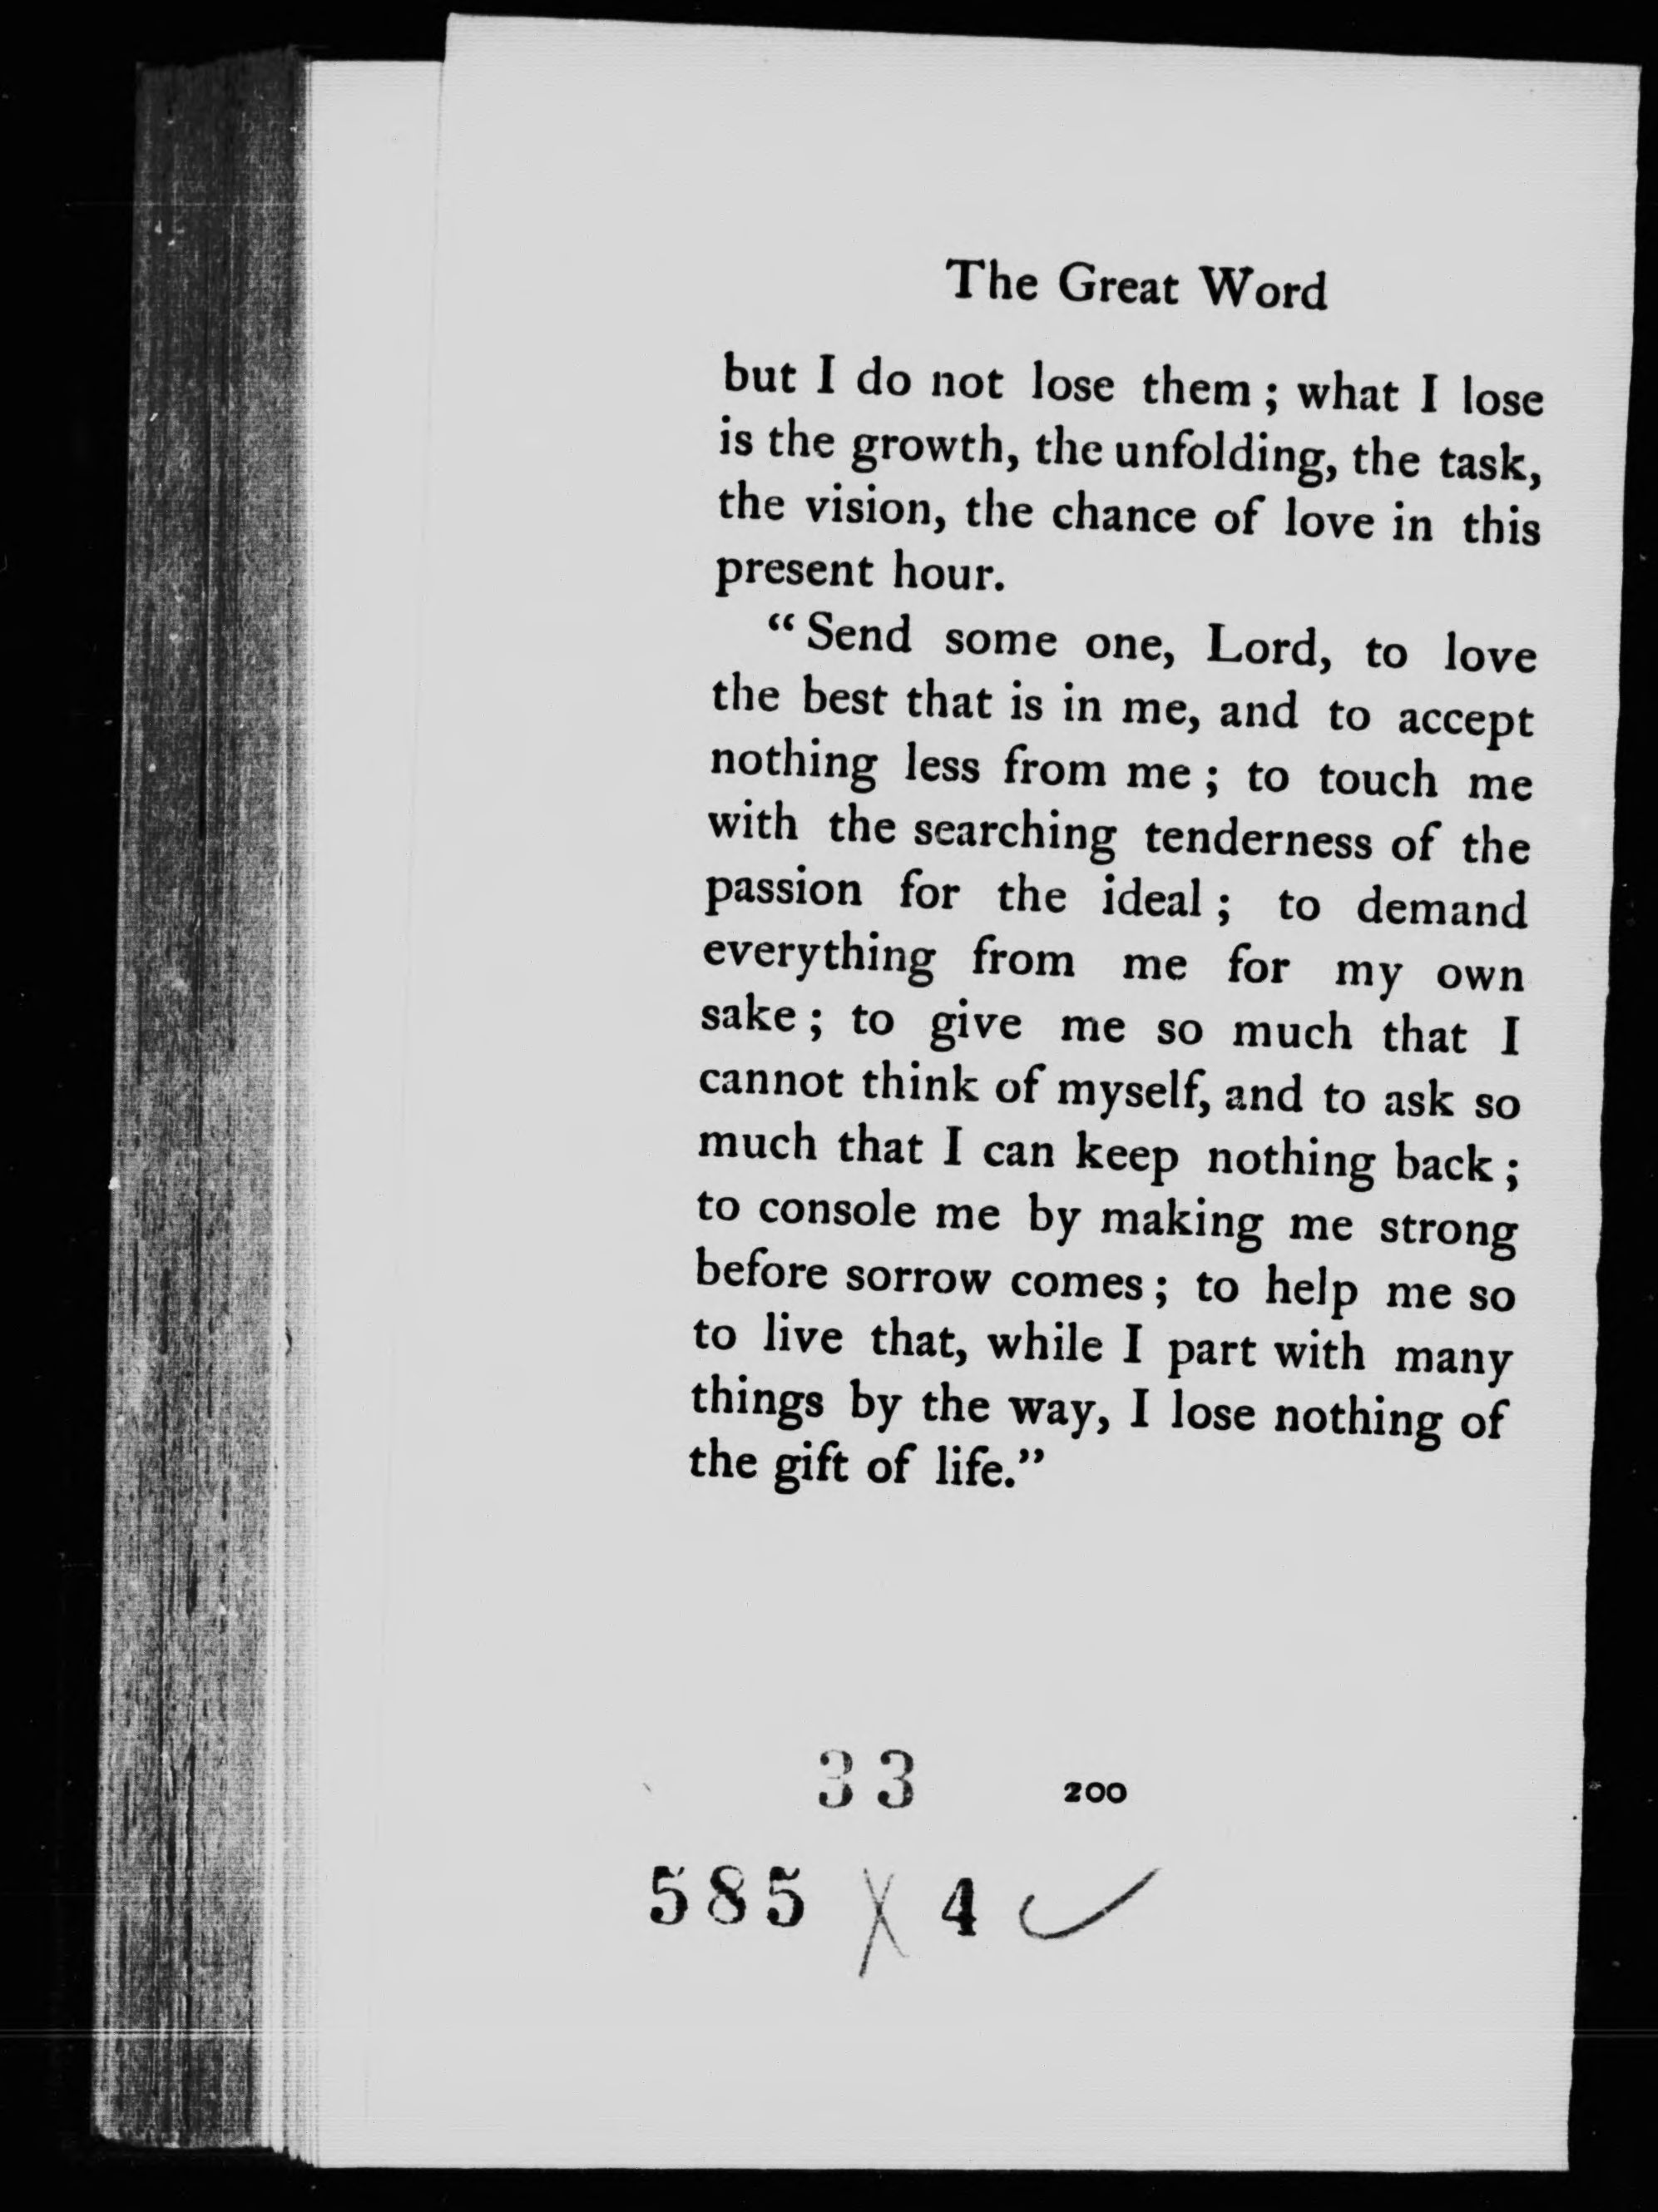 The Great Word
but I do not lose them ; what I lose
is the growth, the unfolding, the task,
the vision, the chance of love in this
present hour.
“ Send some one, Lord, to love
the best that is in me, and to accept
nothing less from me ; to touch me
with the searching tenderness of the
passion for the ideal ; to demand
everything from me for my own
sake ; to give me so much that I
cannot think of myself, and to ask so
much that I can keep nothing back ;
to console me by making me strong
before sorrow comes ; to help me so
to live that, while I part with many
things by the way, I lose nothing of
the gift of life.”
33 200
585 X 4